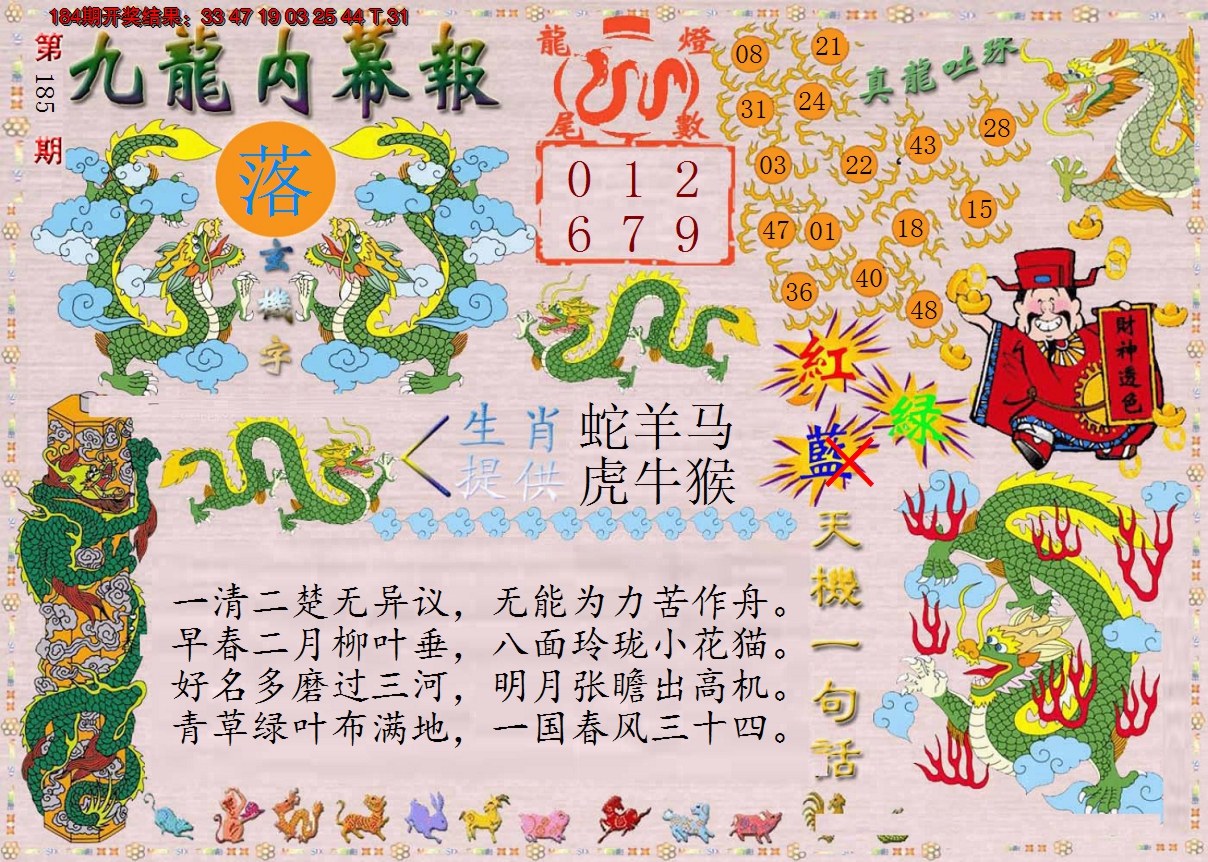 184期开奖结果：33 47 19 03 25 44 T 31
第185期
九龍内幕報
落
玄機字
龍燈
尾數
0 1 2
6 7 9
真龍吐珠
08 21
31 24
03 22 43 28
47 01 18 15
36 40 48
財神透色
紅
綠
藍
生肖 蛇羊马
提供 虎牛猴
天機一句話
一清二楚无异议，无能为力苦作舟。
早春二月柳叶垂，八面玲珑小花猫。
好名多磨过三河，明月张瞻出高机。
青草绿叶布满地，一国春风三十四。